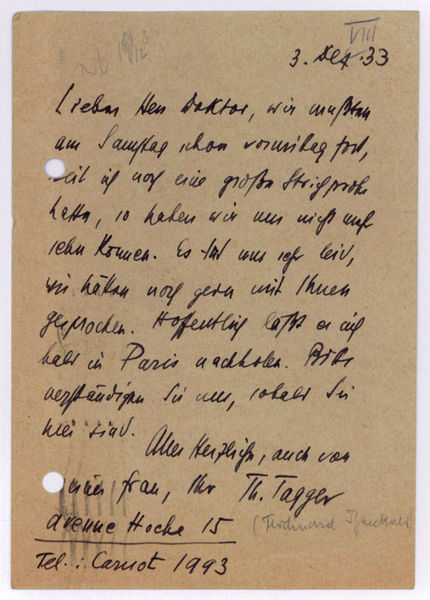 VIII
3. Dez. 33
Lieber Herr Doktor, wir mußten
am Samstag schon vormittag fort,
weil ich noch eine große
hatte, so haben wir uns nicht mehr
sehn können. Es tut uns sehr leid,
wir hätten noch gern mit Ihnen
gesprochen. Hoffentlich läßt es sich
bald in Paris nachholen. Bitte
verständigen Sie uns, sobald Sie
hier sind.
Alles Herzliche, auch von
meiner Frau, Ihr Th. Tagger
(Ferdinand Bruckner)
Avenue Hoche 15
Tel.: Carnot 1993